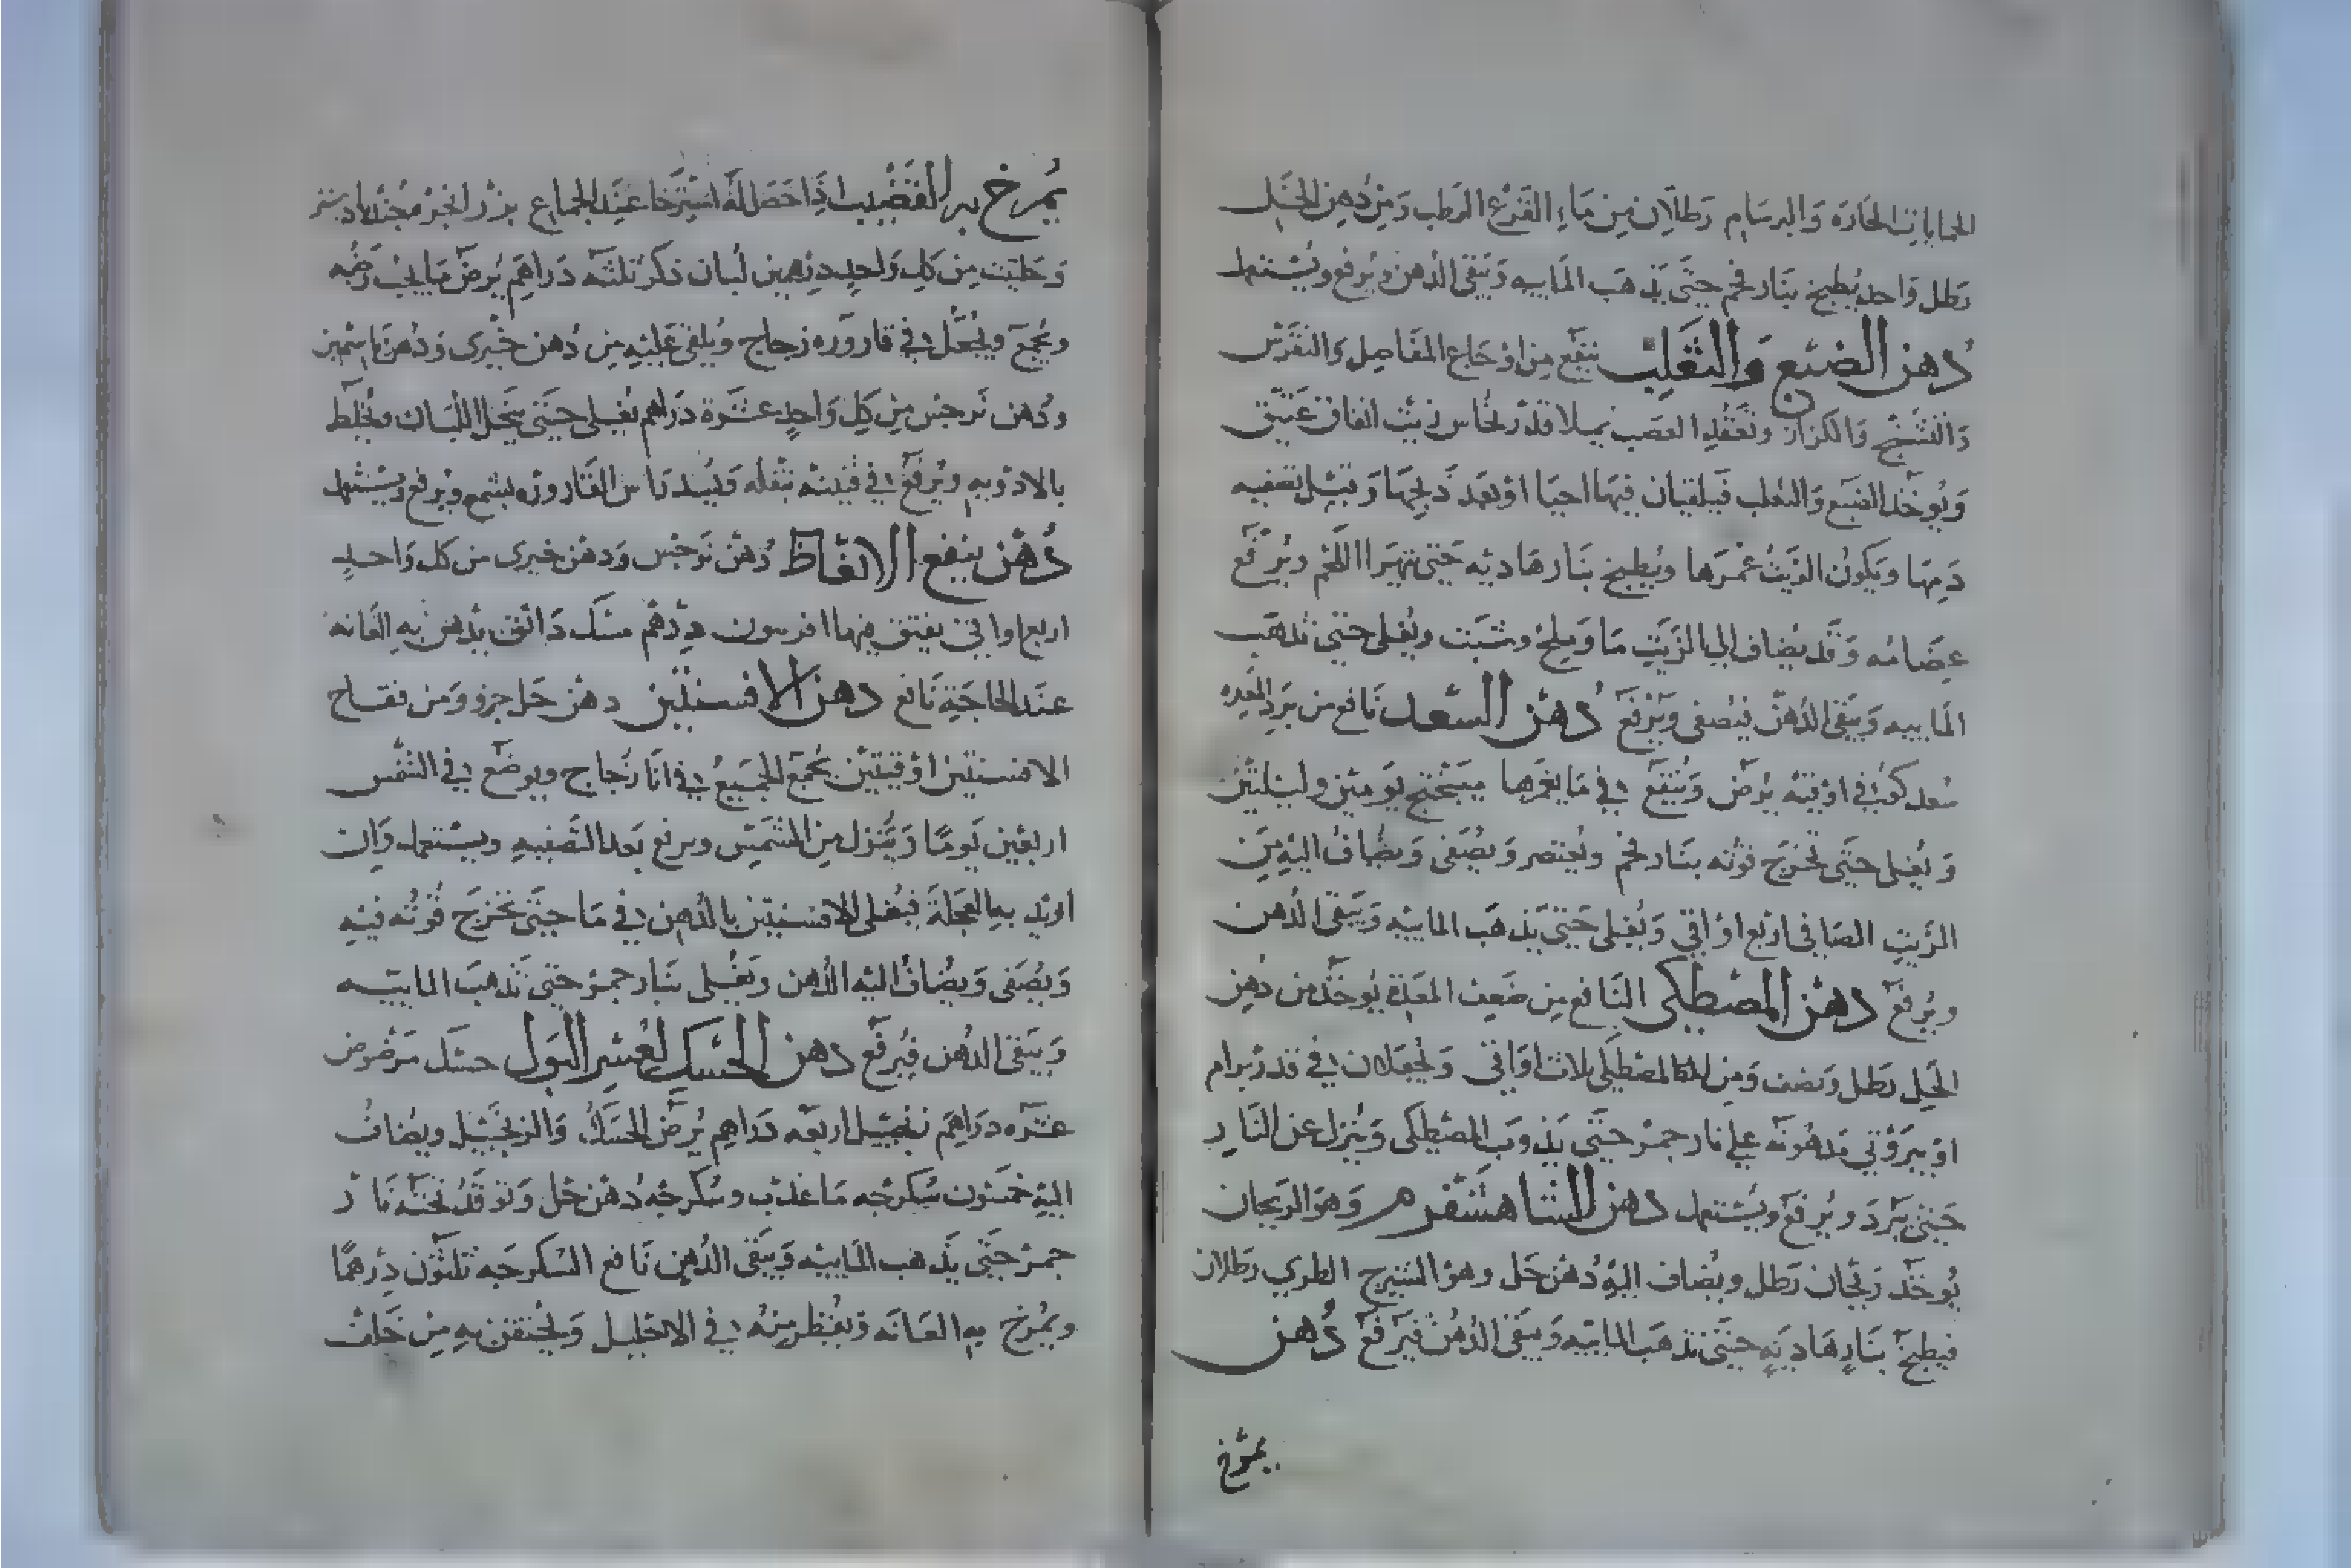 الحمايات الحاره والبرسام رطلان من ماء القرع الرطب ومن دهن الخل
رطل واحد يُطبخ بنار فحم حتى يذهب الماييه ويبقى الدهن ويرفع ويستعمل
دهن الضبع والثعلب ينفع من اوجاع المفاصل والنقرس
والتشنج والكزاز وتعقد العصب يملا قدر نحاس زيت انفاق عتيق
ويوخذ الضبع والثعلب فيلقيان فيها احيا او بعد ذبحها وقبل تصفيه
دمها ويكون الزيت غمرها ويطبخ بنار هاديه حتى يتهرا اللحم ويرفع
عضامه وقد يضاف الى الزيت ما وملح وشبت ويغلى حتى تذهب
الماييه ويبقى الدهن فيصفى ويرفع دهن السعد نافع من برد المعده
سعد كوفي اوقيه يرض وينقع في ما يغمرها ميبختج يومين وليلتين
ويغلى حتى تخرج قوته بنار فحم ويعتصر ويصفى ويضاف اليه من
الزيت الصافي اربع اواقي ويغلى حتى يذهب الماييه ويبقى الدهن
ويرفع دهن المصطكى النافع من ضعف المعدة يوخذ من دهن
الخل رطل ونصف ومن المصطكى ثلاث اواقي ويجعلان في قدر برام
او بيروتي مدهونه على نار جمر حتى يذوب المصطكى وينزل عن النار
حتى يبرد ويرفع ويستعمل دهن الشاهسفرم وهو الريحان
يوخذ ريحان رطل ويضاف اليه دهن خل وهو الشيرج الطري رطلان
فيطبخ بنار هاديه حتى تذهب الماييه ويبقى الدهن فيرفع دهن
يمرخ
يمرخ به القضيب اذا حصل له استرخا عند الجماع بزر انجره جندبادستر
وحلتيت من كل واحد درهمين لبان ذكر ثلثه دراهم يرض ما يجب رضه
ويجمع ويجعل في قاروره زجاج ويلقى عليه من دهن خيرى ودهن ياسمين
ودهن نرجس من كل واحد عشرة دراهم يغلى حتى ينحل اللبان ويختلط
بالادويه ويرفع في قنينه بثفله ويسد راس القاروره بشمع ويرفع ويستعمل
دهن ينفع الانعاظ دهن نرجس ودهن خيرى من كل واحد
اربع اواقي يفتق فيها افربيون درهم مسك دانق يدهن به العانه
عند الحاجة نافع دهن الافسنتين دهن خل جزو ومن فقاح
الافسنتين اوقيتين يجمع الجميع في انا زجاج ويوضع في الشمس
اربعين يوما وينزل من الشمس ويرفع بعد التصفيه ويستعمل وان
اريد به العجلة فيغلى الافسنتين بالدهن في ما حتى تخرج قوته فيه
ويصفى ويضاف اليه الدهن ويغلى بنار جمر حتى تذهب الماييه
ويبقى الدهن فيرفع دهن الحسك لعسر البول حسك مرضوض
عشره دراهم زنجبيل اربعه دراهم يرض الحسك والزنجبيل ويضاف
اليه خمسون سكرجه ما عذب وسكرجه دهن خل وتوقد تحته نار
جمر حتى يذهب الماييه ويبقى الدهن نافع السكرجه ثلثون درهما
ويمرخ به العانه ويقطر منه في الاحليل ويحتقن به من خلف